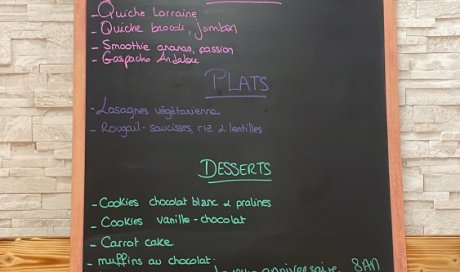 - Quiche Lorraine
- Quiche brocoli, jambon
- Smoothie ananas, passion
- Gaspacho Andalou
PLATS
- Lasagnes végétarienne
- Rougail-saucisses, riz & lentilles
DESSERTS
- Cookies chocolat blanc & pralines
- Cookies vanille-chocolat
- Carrot cake
- muffins au chocolat
anniversaire 8AN